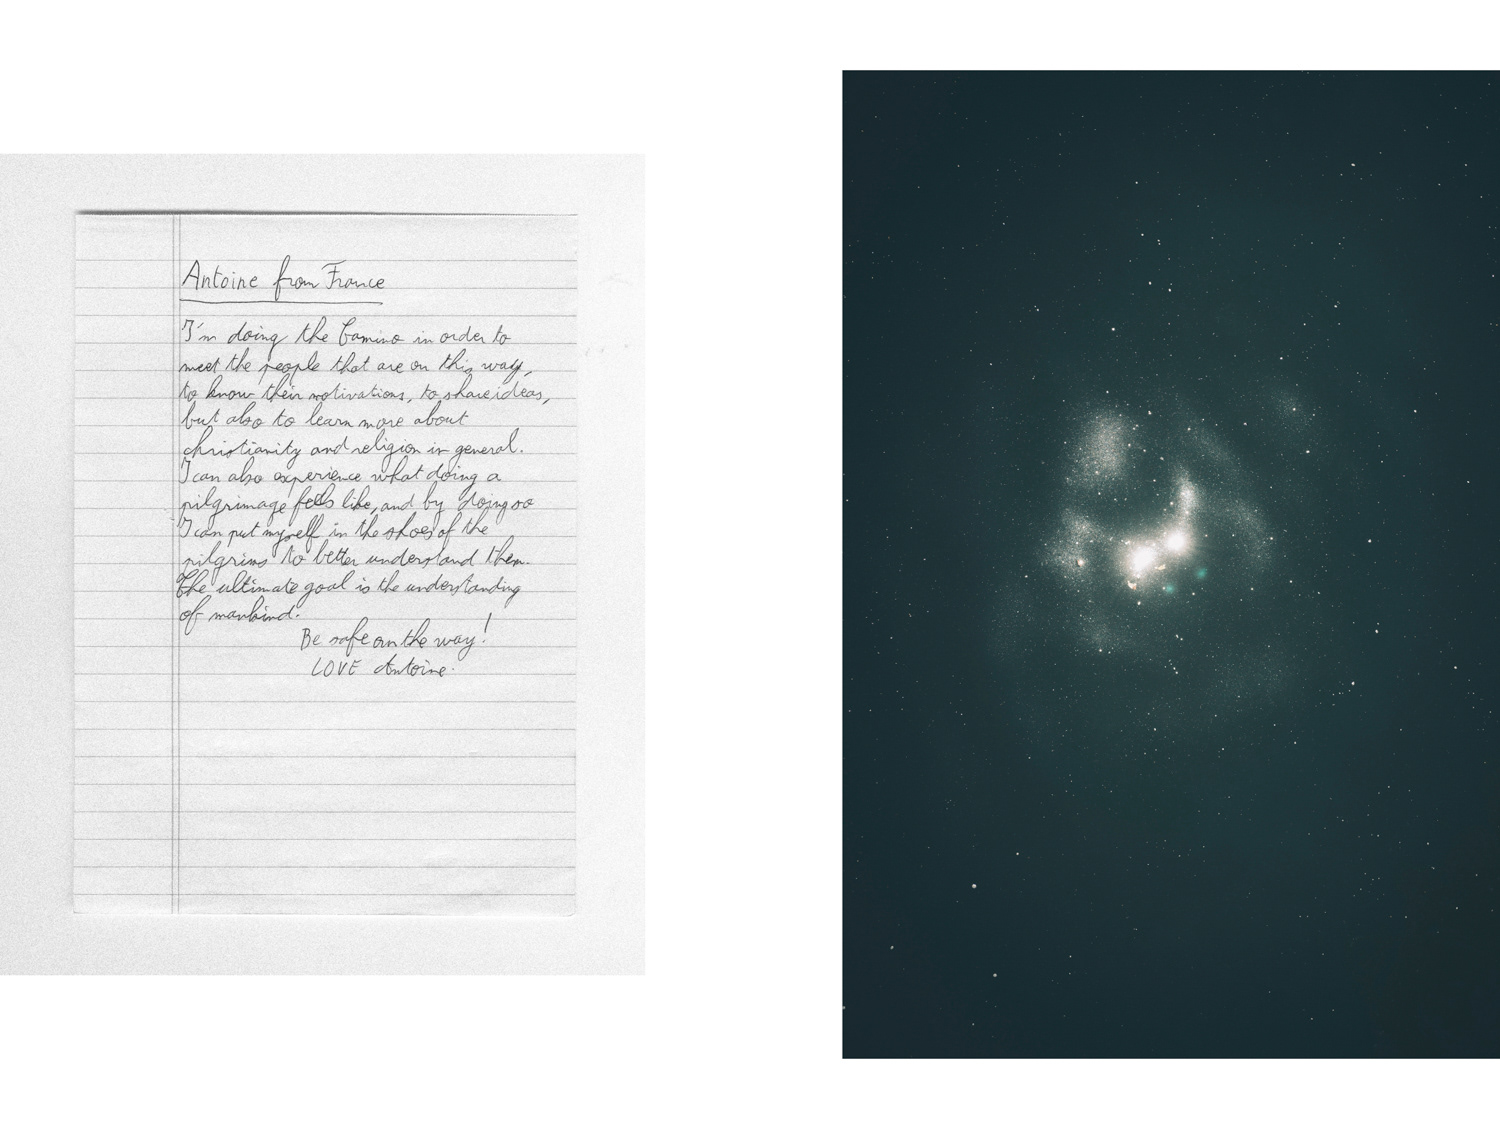 Antoine from France
I'm doing the Camino in order to
meet the people that are on this way,
to know their motivations, to share ideas,
but also to learn more about
christianity and religion in general.
I can also experience what doing a
pilgrimage feels like, and by doing so
I can put myself in the shoes of the
pilgrims to better understand them.
The ultimate goal is the understanding
of mankind.
Be safe on the way!
LOVE Antoine.